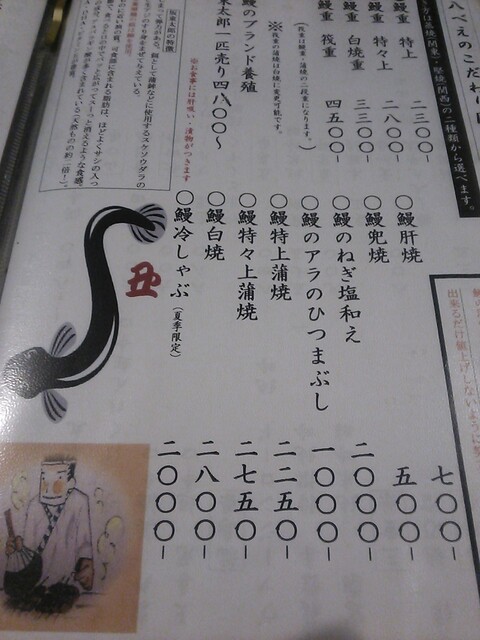 八べえのこだわり
の二種類から選べます。
鰻重 特上 二三〇〇-
鰻重 特々上 二八〇〇-
鰻重 白焼重 三三〇〇-
鰻重 筏重 四五〇〇-
(筏重は鰻重・蒲焼の二段重になります。)
※筏重の蒲焼は白焼に変更可能です。
鰻のブランド養殖
一匹売り四八〇〇~
※お食事には肝吸い・漬物がつきます
坂東太郎の特徴
出来るだけ値上げしないように
〇鰻肝焼 七〇〇-
〇鰻兜焼 五〇〇-
〇鰻のねぎ塩和え 二〇〇〇-
〇鰻のアラのひつまぶし 一〇〇〇-
〇鰻特上蒲焼 二二五〇-
〇鰻特々上蒲焼 二七五〇-
〇鰻白焼 二八〇〇-
〇鰻冷しゃぶ(夏季限定) 二〇〇〇-
丑